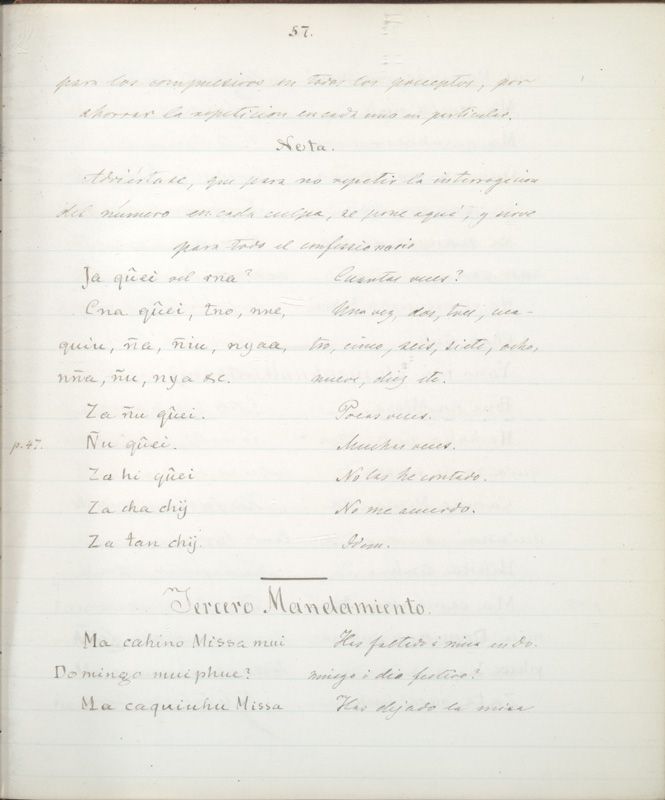 57.
para los compulsivos en todos los preceptos, por
ahorrar la repeticion en cada uno en particular.
Nota.
Adviértase, que para no repetir la interrogacion
del número en cada culpa, se pone aquí, y sirve
para todo el confessionario
Ja qûei vel rna? Cuantas veces?
Cna qûei, tno, nne, Una vez, dos, tres, cua-
quiu, ña, ñiu, nyaa, tro, cinco, seis, siete, ocho,
nña, ñu, nya &c. nueve, diez etc.
Za ñu qûei. Pocas veces.
p. 47. Ñu qûei. Muchas veces.
Za hi qûei No las he contado.
Za cha chij No me acuerdo.
Za tan chij. Idem.
Tercero Mandamiento.
Ma cahino Missa mui Has faltado á misa en do-
Domingo muiphue? mingo i dia festivo?
Ma caquiuhu Missa Has dejado la misa